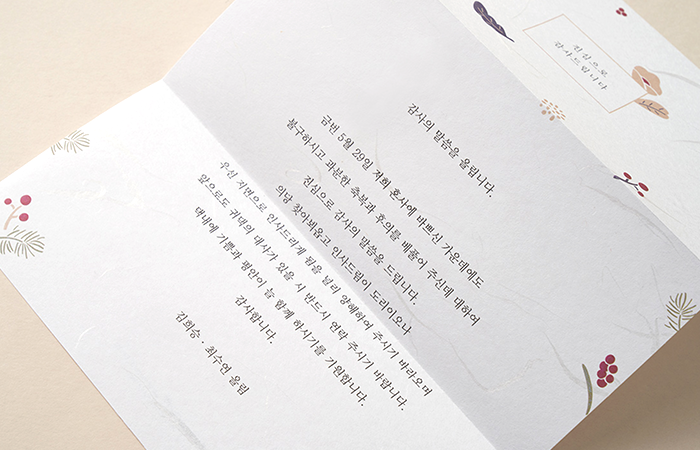 진심으로
감사드립니다
감사의 말씀을 올립니다.
금번 5월 29일 저희 혼사에 바쁘신 가운데에도
불구하시고 과분한 축복과 후의를 베풀어 주신데 대하여
진심으로 감사의 말씀을 드립니다.
의당 찾아뵈옵고 인사드림이 도리이오나
우선 지면으로 인사드리게 됨을 널리 양해하여 주시기 바라오며
앞으로도 귀댁의 대사가 있을 시 반드시 연락 주시기 바랍니다.
댁내에 기쁨과 평안이 늘 함께 하시기를 기원합니다.
감사합니다.
김희승 · 최수연 올림